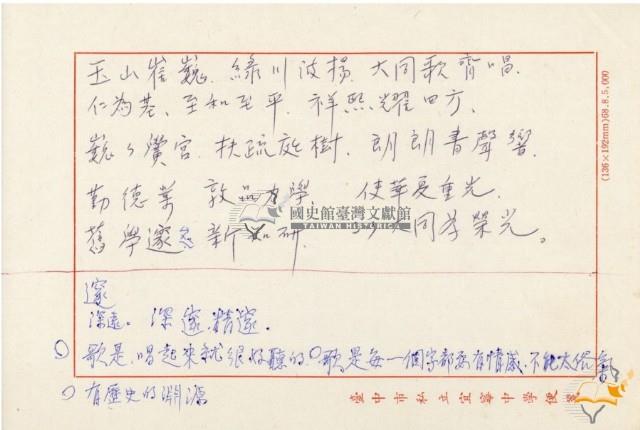 玉山崔巍.綠川波揚.大同歌齊唱.
仁為基.至和至平.祥熙耀四方.
巍々黌宮.扶疏庭樹.朗朗書聲響.
勤德業 敦品力學.使華夏重光.
舊學邃 新知研 大同孝榮光。
國史館臺灣文獻館
TAIWAN HISTORICA
邃
深遠。深邃.精邃.
歌是.唱起來就很好聽的.歌是每一個字都要有情感.不能太俗
有歷史的淵源
臺中市私立宜寧中學便箋
(136×192mm)68.8.5,000